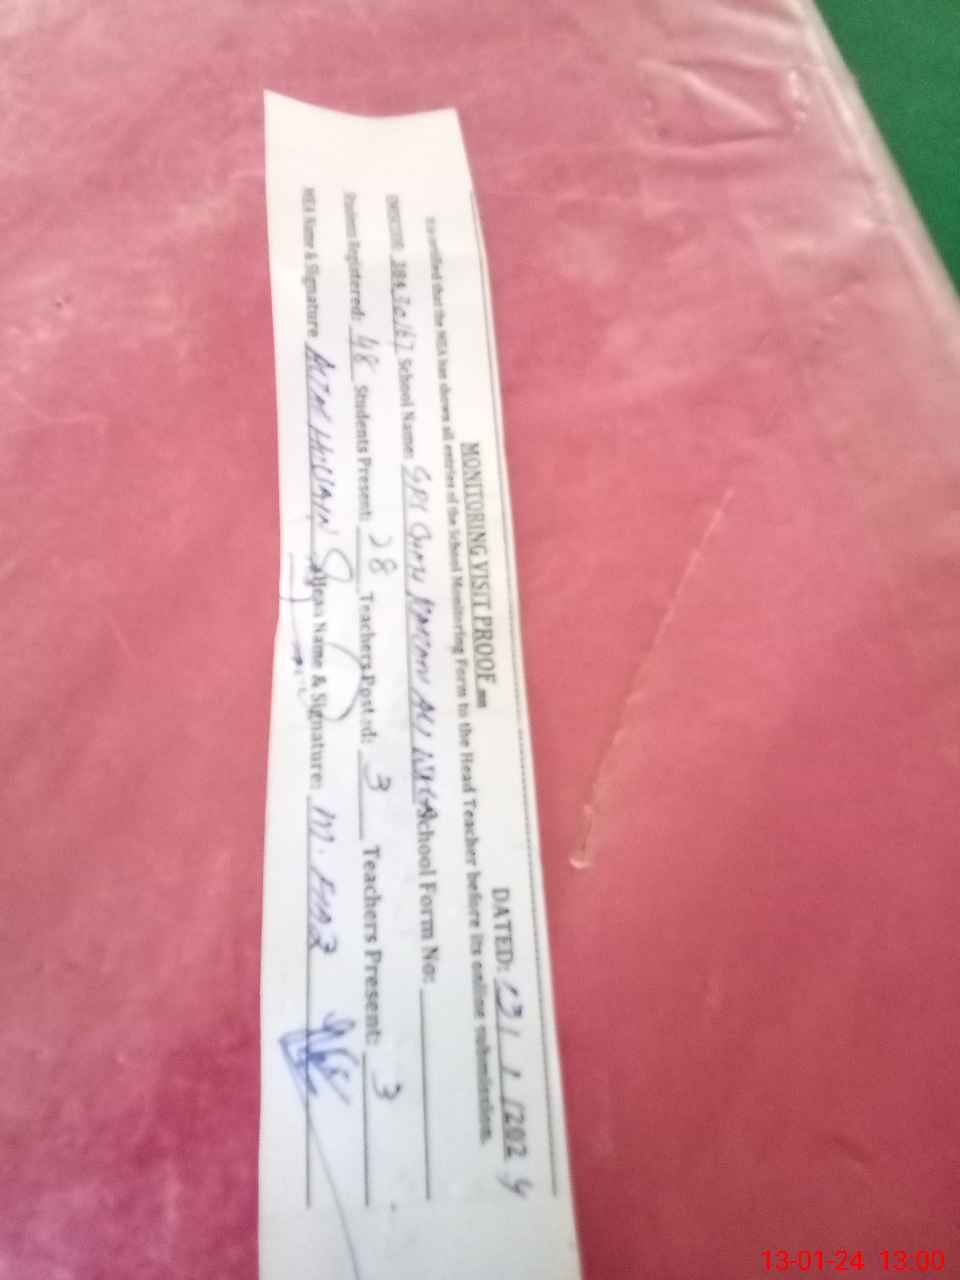 MONITORING VISIT PROOF DATED: 13/1/2024
It is certified that the MEA has shown all entries of the School Monitoring Form to the Head Teacher before its online submission.
School Name: School Form No:
Student Registered: 48 Students Present: 28 Teachers Posted: 3 Teachers Present: 3
MEA Name & Signature: HUSSAIN Name & Signature: M.
13-01-24 13:00